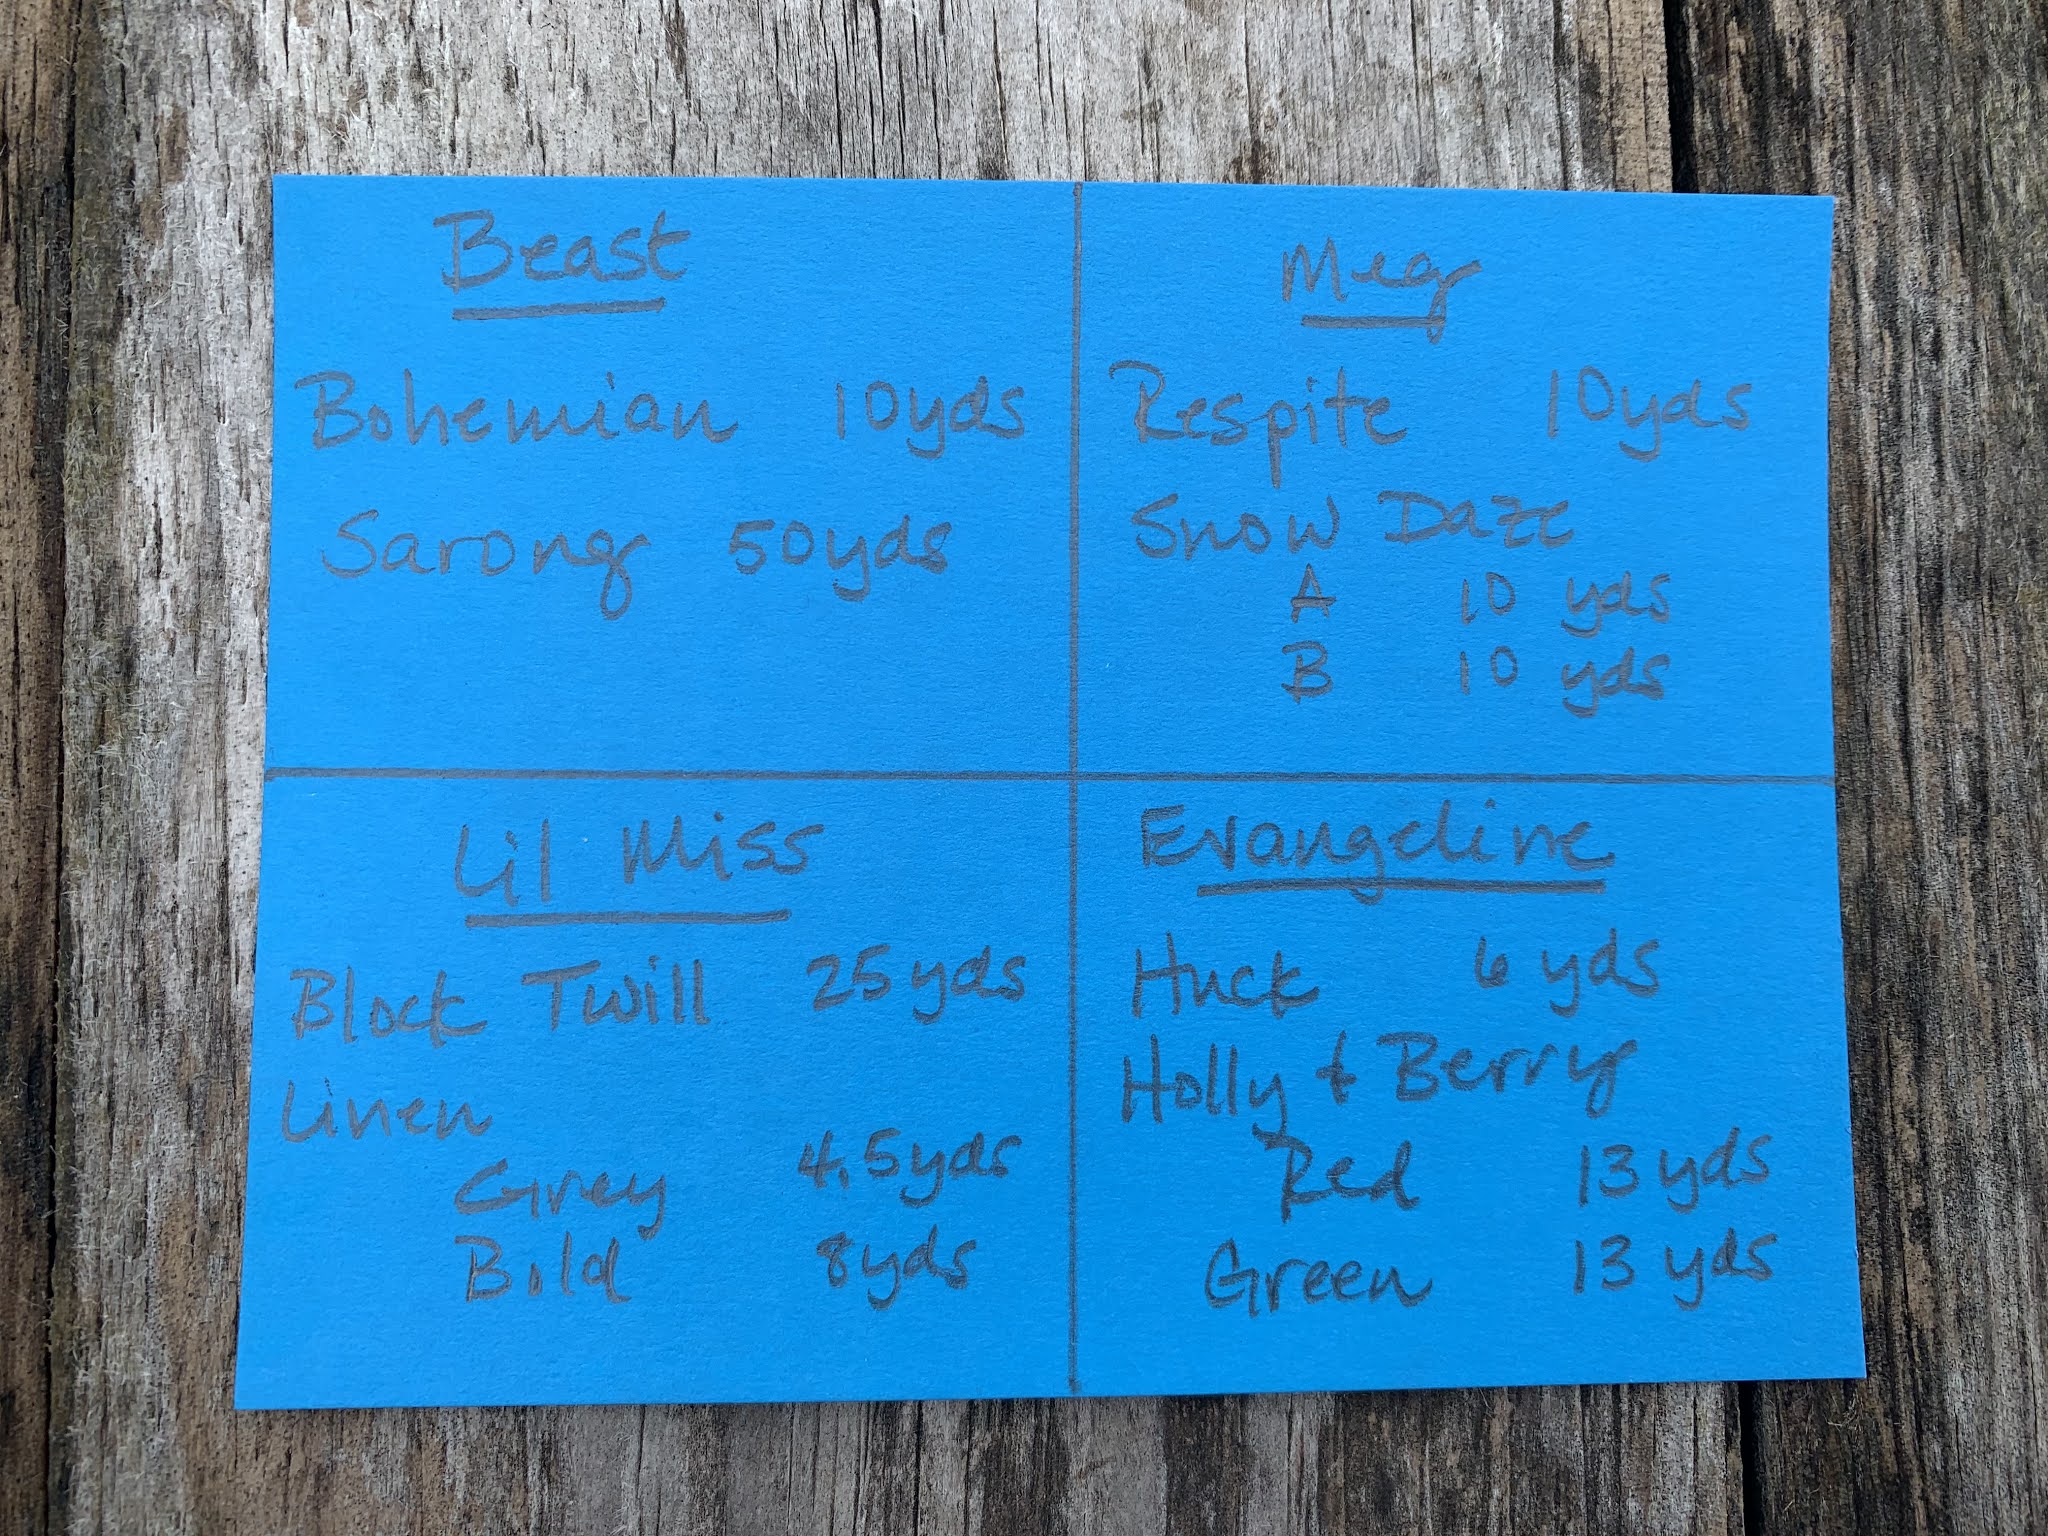 Beast
Bohemian 10yds
Sarong 50yds
Meg
Respite 10yds
Snow Daze
A 10 yds
B 10 yds
Lil Miss
Block Twill 25yds
Linen
Grey 4.5yds
Bold 8yds
Evangeline
Huck 6 yds
Holly & Berry
Red 13 yds
Green 13 yds